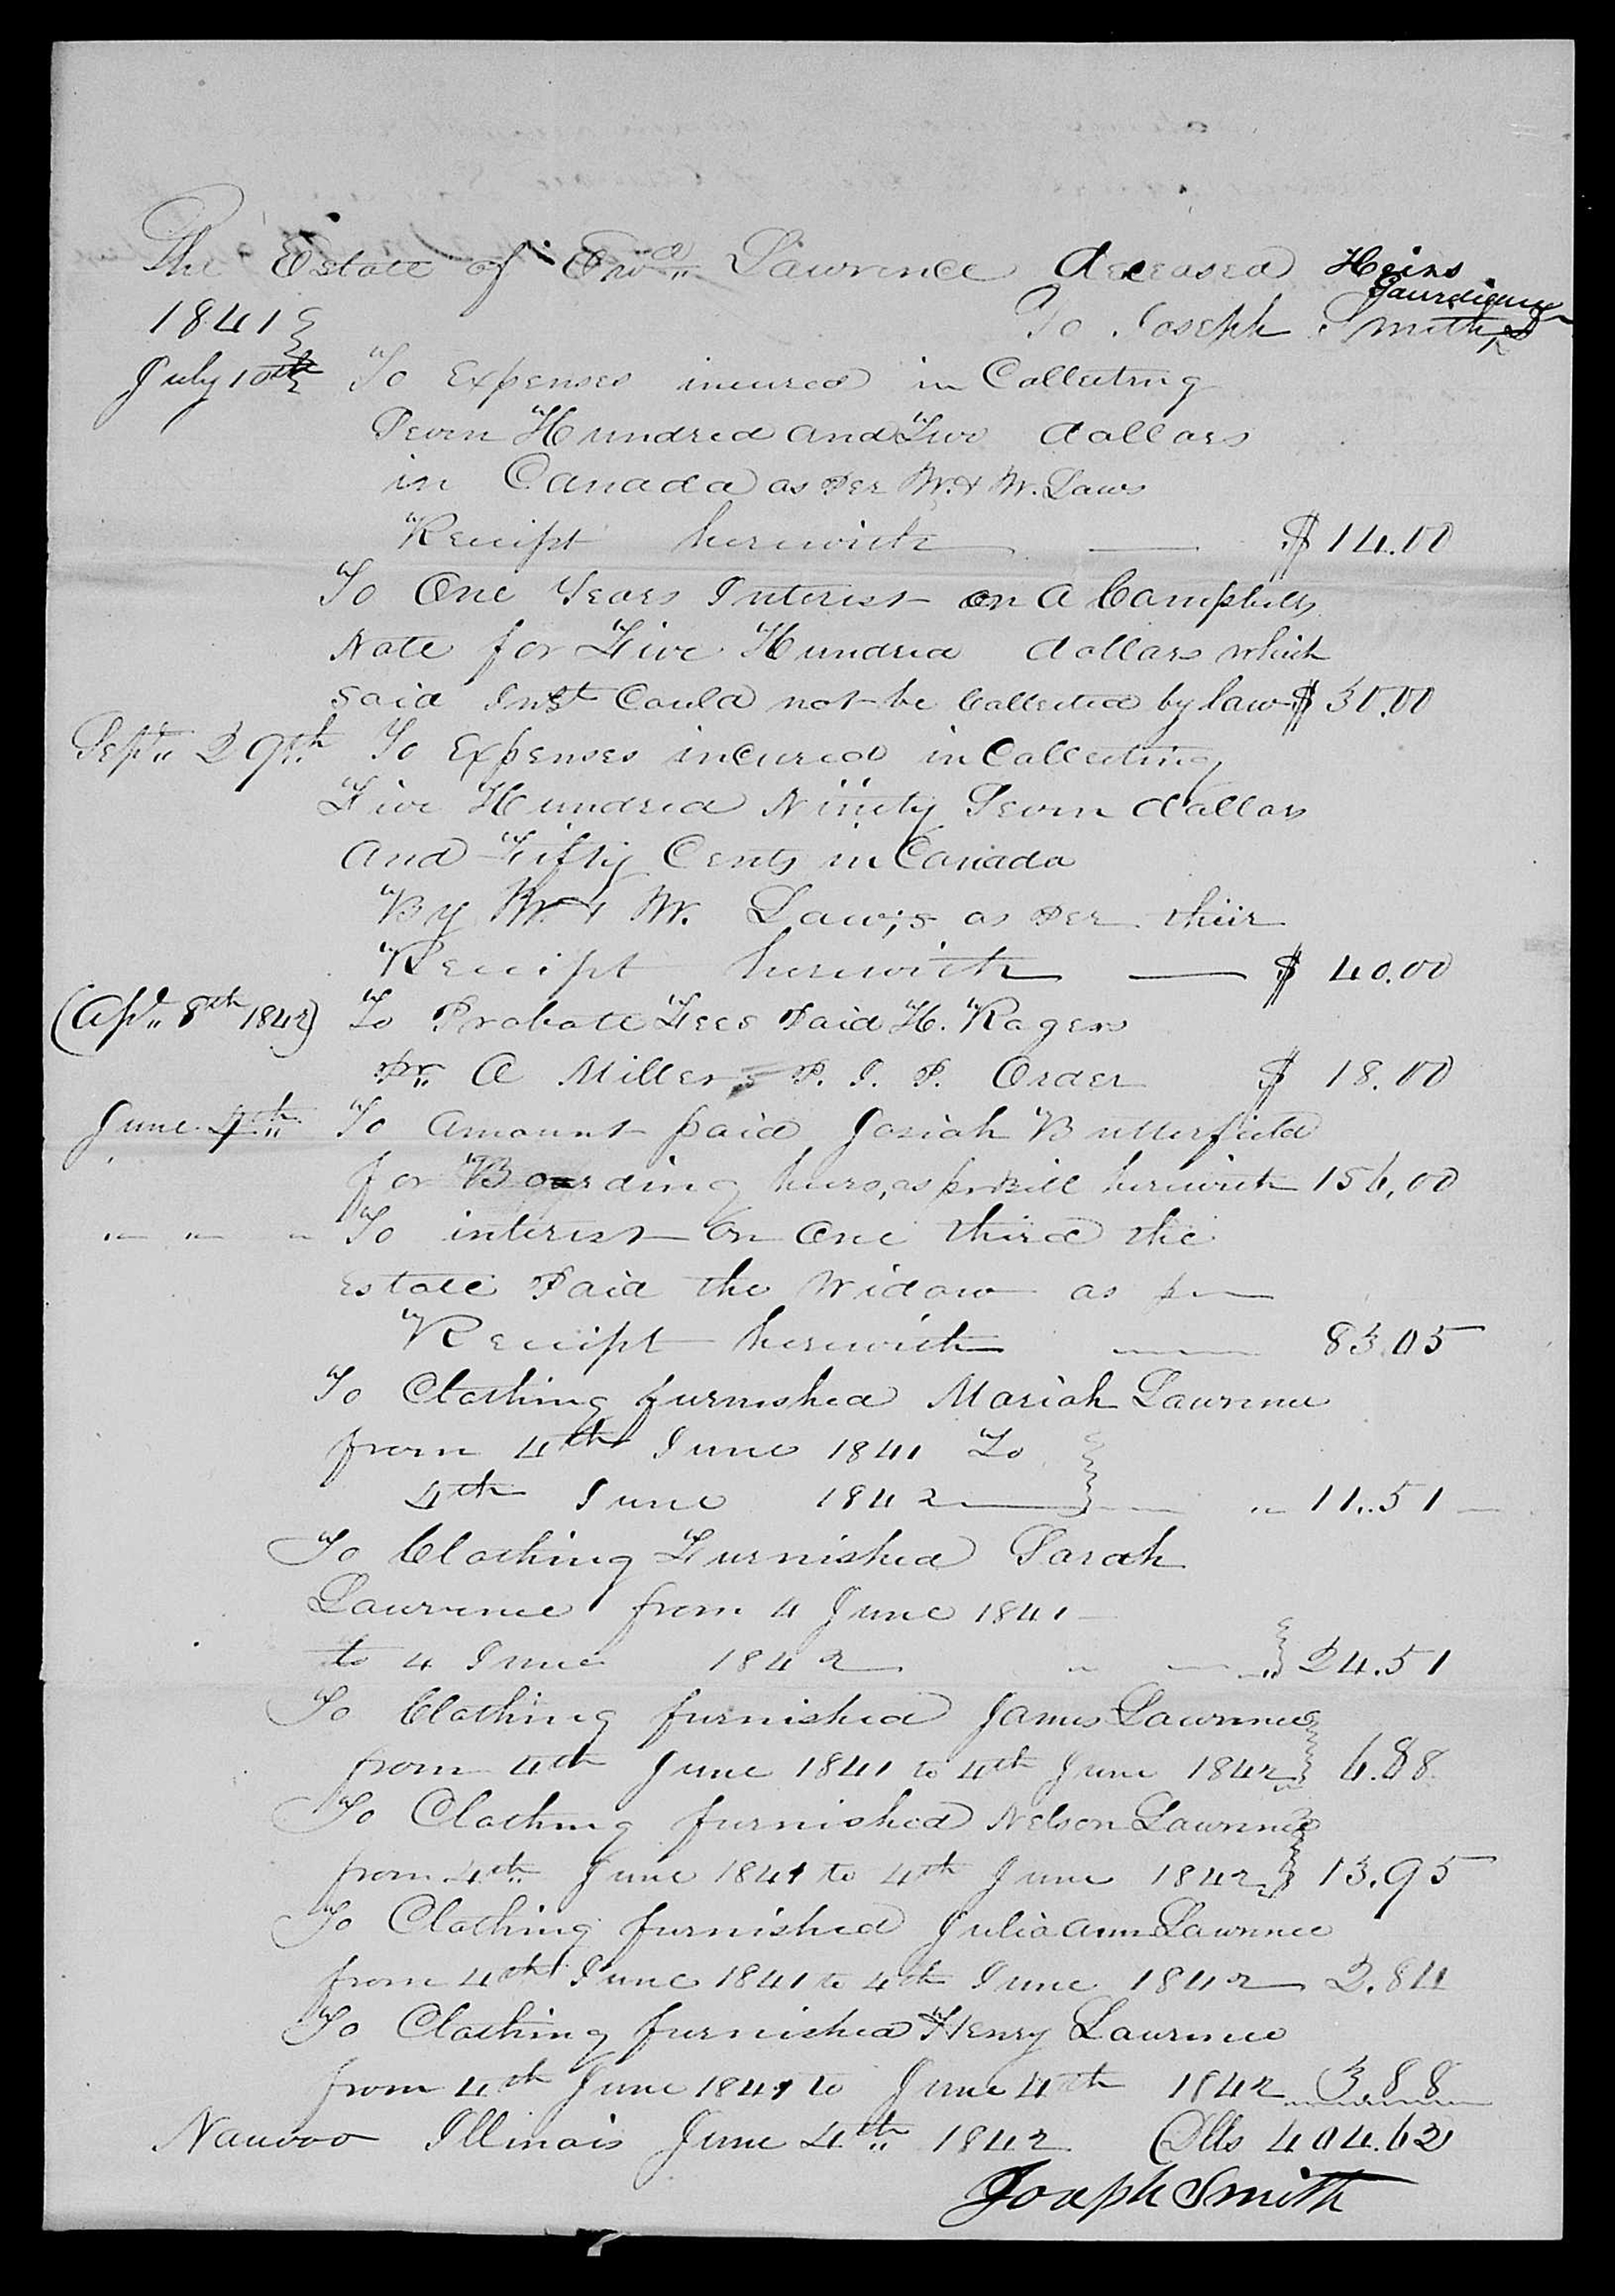 The Estate of Edwd. Lawrence deceased Heirs
Gaurdian
1841 To Joseph Smith Dr
July 10th To Expenses incured in Collecting
Seven Hundred and Two dollars
in Canada as Per W. & W. Laws
Receipt herewith $ 14.00
To One Years Interest on A Campbells
Note for Five Hundred dollars which
said Inst Could not be Collected by law $ 30.00
Sept. 29th. To Expenses incured in Collecting
Five Hundred Ninety Seven dollars
And Fifty Cents in Canada
By W. & W. Law,s as Per their
Receipt herewith $ 40.00
(Apl. 8th 1842) To Probate Fees Paid H. Rogers
pr. A Millers P. J. P. Order $ 18.00
June 4th To amount paid Josiah Butterfield
for Boarding heirs, as pr Bill herewith 156,00
" " " To interest on One third the
Estate Paid the Widow as pr
Receipt herewith 83.05
To Clothing furnished Mariah Lawrence
from 4th June 1841 To
4th June 1842 " 11..51
To Clothing Furnished Sarah
Lawrence from 4 June 1841
to 4 June 1842 " 24.51
To Clothing furnished James Lawrence
from 4th June 1841 to 4th June 1842 6.88
To Clothing furnished Nelson Lawrence
from 4th June 1841 to 4th June 1842 13.95
To Clothing furnished Julia Ann Lawrence
from 4th June 1841 to 4th June 1842 2.84
To Clothing furnished Henry Lawrence
from 4th June 1841 to June 4th 1842 3.88
Nauvoo Illinois June 4th 1842 Dlls 404.62
Joseph Smith